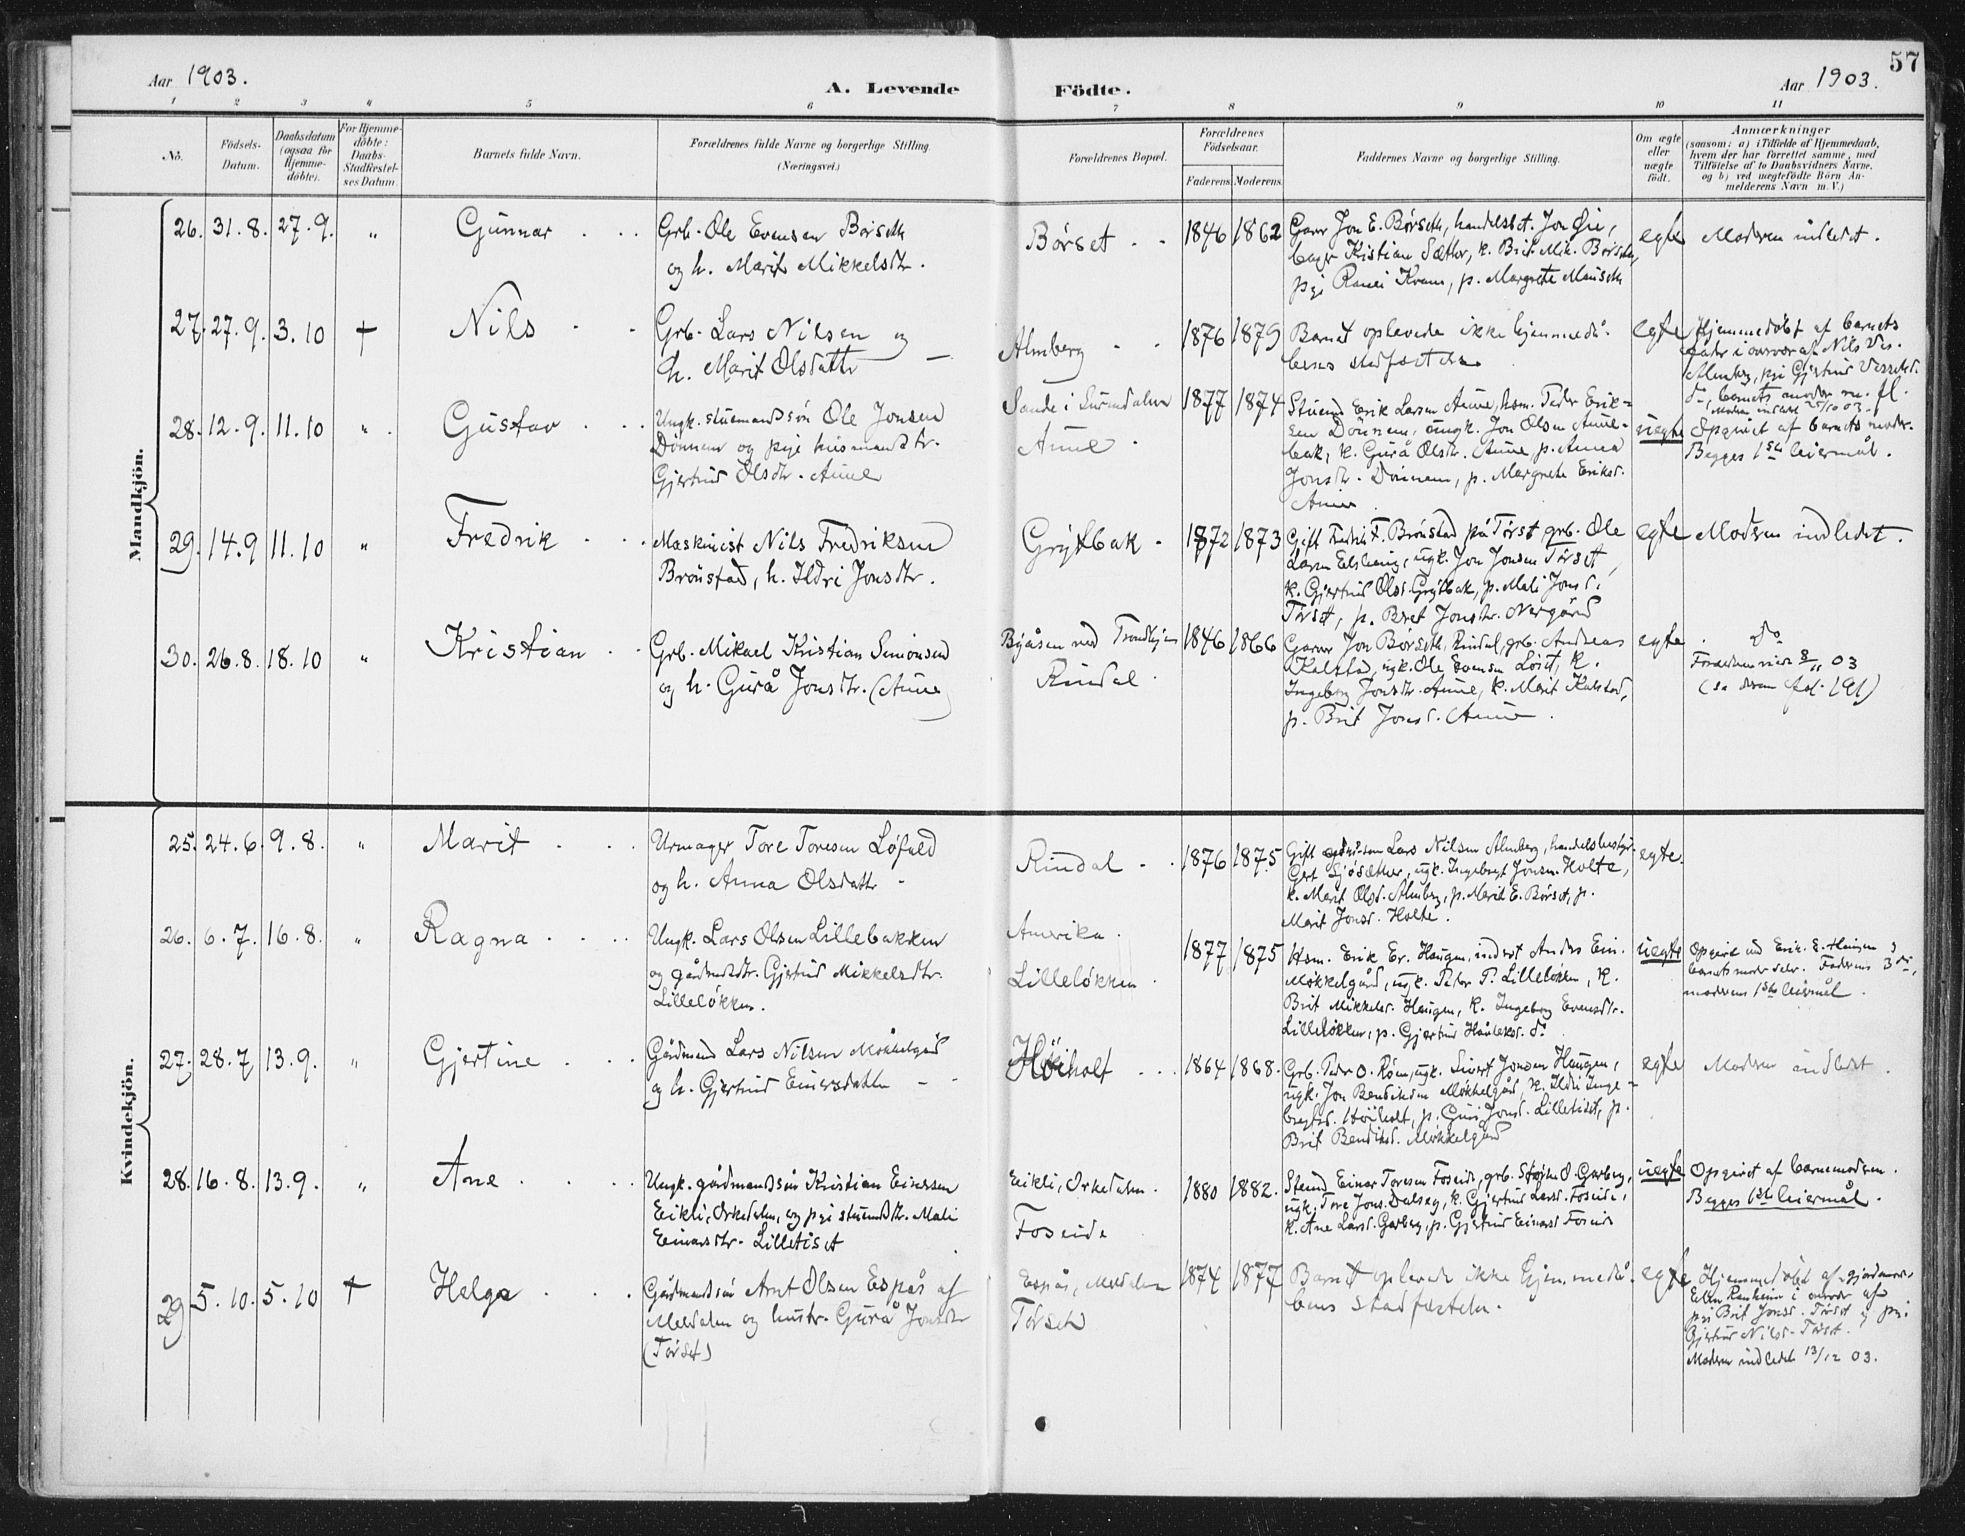 57
Aar 1903.
A. Levende
Födte.
Aar 1903.
1 2 3 4 5 6 7 8 9 10 11
No.
Födsels-
Datum.
Daabsdatum
(ogsaa for
Hjemme-
döbte).
For Hjemme-
döbte:
Daabs-
Stadfæstel-
ses Datum.
Barnets fulde Navn.
Forældrenes fulde Navne og borgerlige Stilling.
(Næringsvei.)
Forældrenes Bopæl.
Forældrenes
Födselsaar.
Faderens.
Moderens.
Faddernes Navne og borgerlige Stilling.
Om ægte
eller
uægte
födt.
Anmærkninger
(saasom: a) i Tilfælde af Hjemmedaab,
hvem der har forrettet samme, med
Tilföielse af to Daabsvidners Navne,
og b) ved uægtefödte Börn An-
melderens Navn m. V.)
Mandkjön.
26. 31.8. 27.9. " Gunnar
Grb. Ole Evensen Børseth
og h. Marit Mikkelsdtr.
Børset
1846 1862
Garv Jon E. Børseth, handelsbet. Jon Øie,
bager Kristian Sæther, k. Brit Mik. Børseth,
pige Ranei Kvam, p. Margrete
egte
Moderen indledet.
27. 27.9. 3.10 † Nils
Grb. Lars Nilsen og
h. Marit Olsdatter
Almberg
1876 1879
Barnet oplevede ikke hjemmedå-
bens stadfæstelse
egte
Hjemmedøbt af barnets
fader i overvær af Nils
Almberg, pige Gjertrud
barnets moder m. fl.
28. 12.9. 11.10 " Gustav
Ungk. stuemandssøn Ole Jonsen
Dønnem og pige husmandsdtr.
Gjertrud Olsdtr. Aune
Sande i Surendalen
Aune
1877 1874
Stuemd Erik Larsen Aune, hsm. Peder Erik-
sen Dønnem, ungk. Jon Olsen Aune-
bak, k. Gurå Olsdtr. Aune, p. Anna
Jonsdtr. Dønnem, p. Margrete Eriksd.
Aune
uegte
Opgivet af barnets moder.
Begges 1ste leiermål.
29. 14.9 11.10 " Fredrik
Maskinist Nils Fredriksen
Brønstad, h. Ildri Jonsdtr.
Grytbak
1872 1873
Gift Fredrik F. Brønstad på Tørset, grb. Ole
Larsen, ungk. Jon Jonsen Tørset,
k. Gjertrud Olsd. Grytbak, p. Mali Jonsd.
Tørset, p. Beret Jonsdtr. Nergård
egte
Moderen indledet.
30. 26.8. 18.10 " Kristian
Grb. Mikael Kristian Simonsen
og h. Gurå Jonsdtr. (Aune)
Byåsen ved Trondhjem
Rindal
1846 1866
Garver Jon Børseth, Rindal, grb. Andreas
Kalstad, ungk. Ole Evensen Løset, k.
Ingeborg Jonsdtr. Aune, k. Marit Kalstad,
p. Brit Jonsd. Aune
egte
do
03
(se fol. 191)
Kvindekjön.
25. 24.6. 9.8. " Marit
Urmager Tore Toresen Løfald
og h. Anna Olsdatter
Rindal
1876 1875
Gift Lars Nilsen Almberg, handelsbestyr.
Gert Sjøsæther, ungk. Ingebrigt Jonsen Holte,
k. Marit Olsd. Almberg, p. Marit E. Børset, p.
Marit Jonsd. Holte.
egte.
26. 6.7. 16.8. " Ragna
Ungk. Lars Olsen Lillebakken
og gårdmdsdtr. Gjertrud Mikkelsdtr.
Lilleløkken.
Amerika.
Lilleløkken
1877 1875
Hsm. Erik Er. Haugen, inderst Anders Ein.
Møkkelgård, ungk. Peter P. Lilleløkken, k.
Brit Mikkelsd. Haugen, k. Ingeborg Evensdtr.
Lilleløkken, p. Gjertrud do
uegte
Opgivet ved Erik E. Haugen &
barnets moder selv. Faderens 3die,
moderens 1ste leiermål.
27. 28.7 13.9. " Gjertine
Gårdmand Lars Nilsen Møkkelgård
og h. Gjertrud Einersdatter
Høiholt
1864 1868.
Grb. Peder O. Røen, ungk. Sivert Jonsen Haugen,
ungk. Jon Bendiksen Møkkelgård, k. Ildri Inge-
brigtsd. Høiholt, p. Guri Jonsd. Lilletiset, p.
Brit Bendiksd. Møkkelgård
egte
Moderen indledet.
28. 16.8. 13.9. " Ane
Ungk. gårdmandssøn Kristian Einersen
Eikli, Orkedalen, og pige stuemdsdtr. Mali
Einarsdtr. Lilletiset
Eikli, Orkedalen.
Foseide
1880 1882.
Stuemd Einar Toresen Foseide, grb. O. Garberg,
ungk. Tore Jons. Dalseg, k. Gjertrud Larsd. Foseide,
k. Ane Larsd. Garberg, p. Gjertrud Einarsd Foseide
uegte
Opgivet af barnemoderen.
Begges 1ste leiermål.
29 5.10. 5.10 † Helga
Gårdmandssøn Arnt Olsen Espås af
Meldalen og hustr. Gurå Jonsdtr
(Tørset)
Espås, Meldalen
Tørset
1874 1877
Barnet oplevede ikke hjemmedå-
bens stadfæstelse.
egte
Hjemmedøbt af gjordmor
i overvær af
pige Brit Jonsd. Tørset og pige
Gjertrud Nilsd. Tørset.
Moderen indledet 13/12 03.